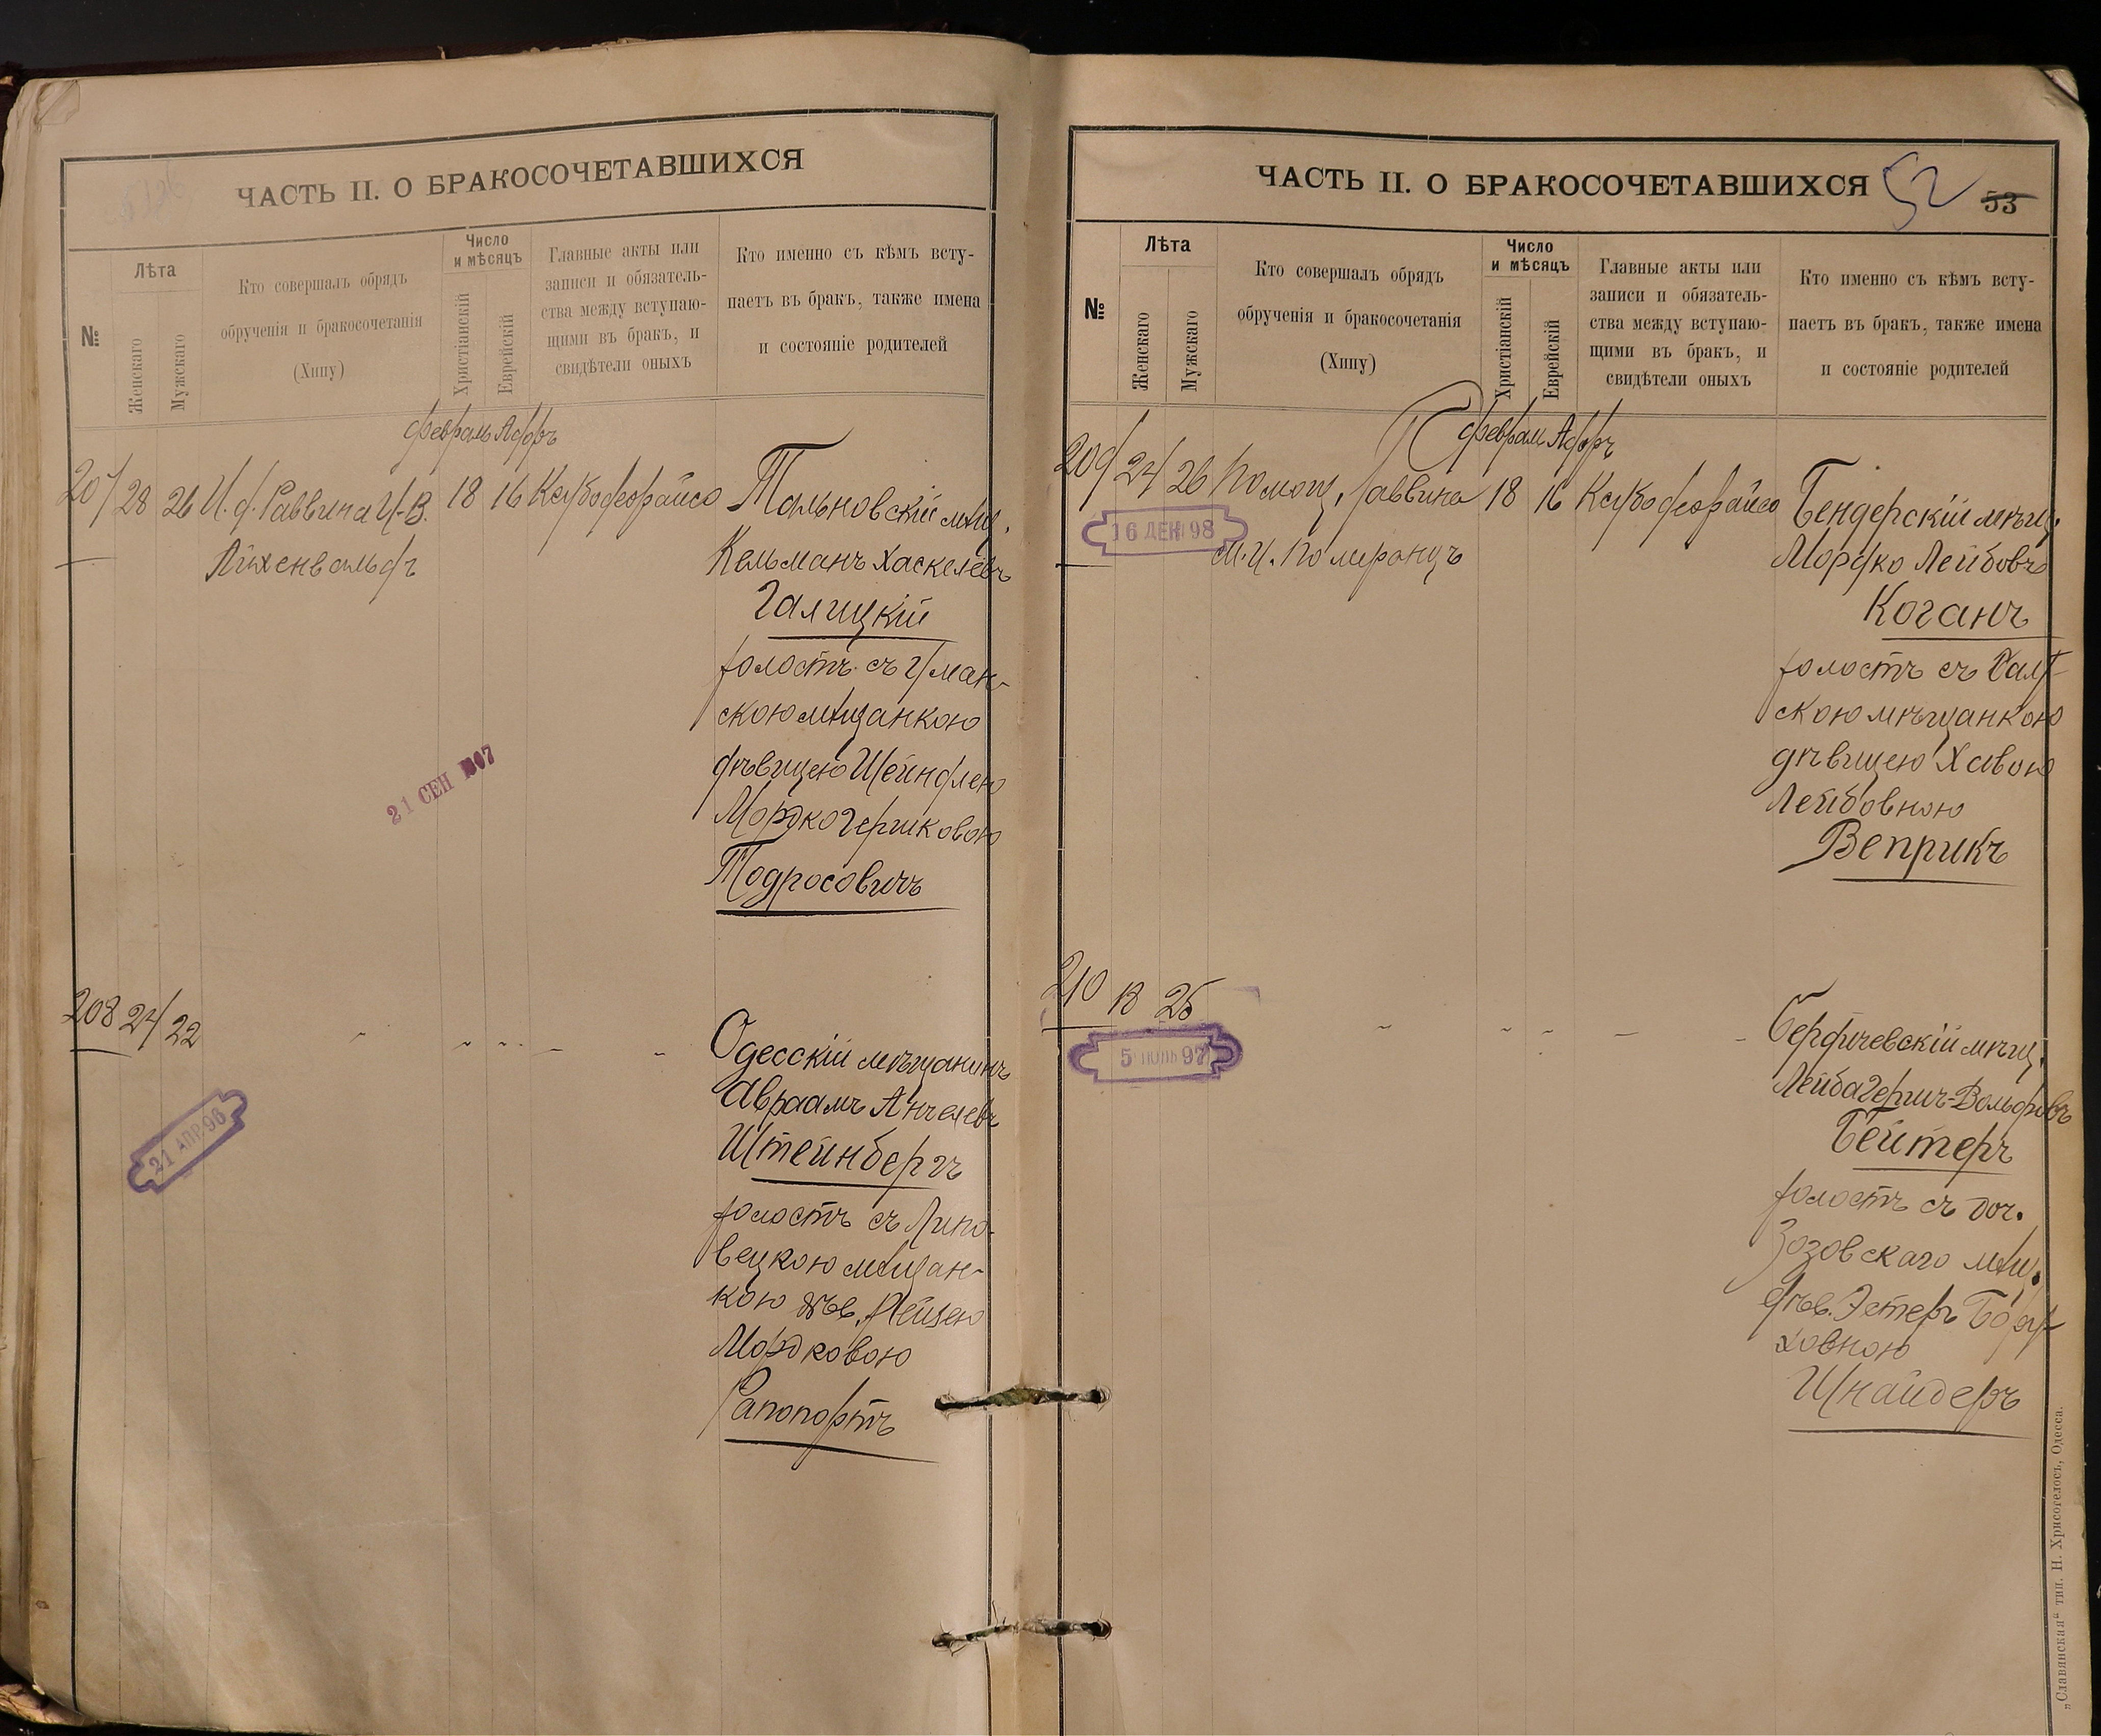 ЧАСТЬ II. О БРАКОСОЧЕТАВШИХСЯ
№
Лѣта
Женскаго
Мужскаго
Кто совершалъ обрядъ
обрученія и бракосочетанія
(Хипу)
Число
и мѣсяцъ
Христіанскій
Еврейскій
Главные акты или
записи и обязатель-
ства между вступаю-
щими въ бракъ, и
свидѣтели оныхъ
Кто именно съ кѣмъ всту-
паетъ въ бракъ, также имена
и состояніе родителей
февраль Адаръ
207 28 26 И. д. Раввина И-В. 18 16
Айхенвальдъ
Тальновскій мѣщ.
Кельманъ Хаскелевъ
Галицкій
холостъ съ Уман-
скою мѣщанкою
дѣвицею Шейндлею
Мордко Гершковою
Тодросовичъ
21 СЕН 1907
208 24 22
21 АПР 96
Одесскій мѣщанинъ
Авраамъ Анчелевъ
Штейнбергъ
холостъ съ Липо-
вецкою мѣщан-
кою дѣв.
Мордковою
Рапопортъ
ЧАСТЬ II. О БРАКОСОЧЕТАВШИХСЯ
52
53
№
Лѣта
Женскаго
Мужскаго
Кто совершалъ обрядъ
обрученія и бракосочетанія
(Хипу)
Число
и мѣсяцъ
Христіанскій
Еврейскій
Главные акты или
записи и обязатель-
ства между вступаю-
щими въ бракъ, и
свидѣтели оныхъ
Кто именно съ кѣмъ всту-
паетъ въ бракъ, также имена
и состояніе родителей
февраль Адаръ
209 24 26 Помощ. раввина 18 16
М. И. Померанцъ
16 ДЕК 98
Бендерскій мѣщ.
Мордко Лейбовъ
Коганъ
холостъ съ Балт-
скою мѣщанкою
дѣвицею Хавою
Лейбовною
Веприкъ
210 18 25
Бердичевскій мѣщ.
Лейба Гершъ-Вольфовъ
Бейтеръ
холостъ съ доч.
Зозовскаго мѣщ.
дѣв. Эстеръ Бору-
ховною
Шнайдеръ
„Славянская“ тип. Н. Хрисогелосъ, Одесса.